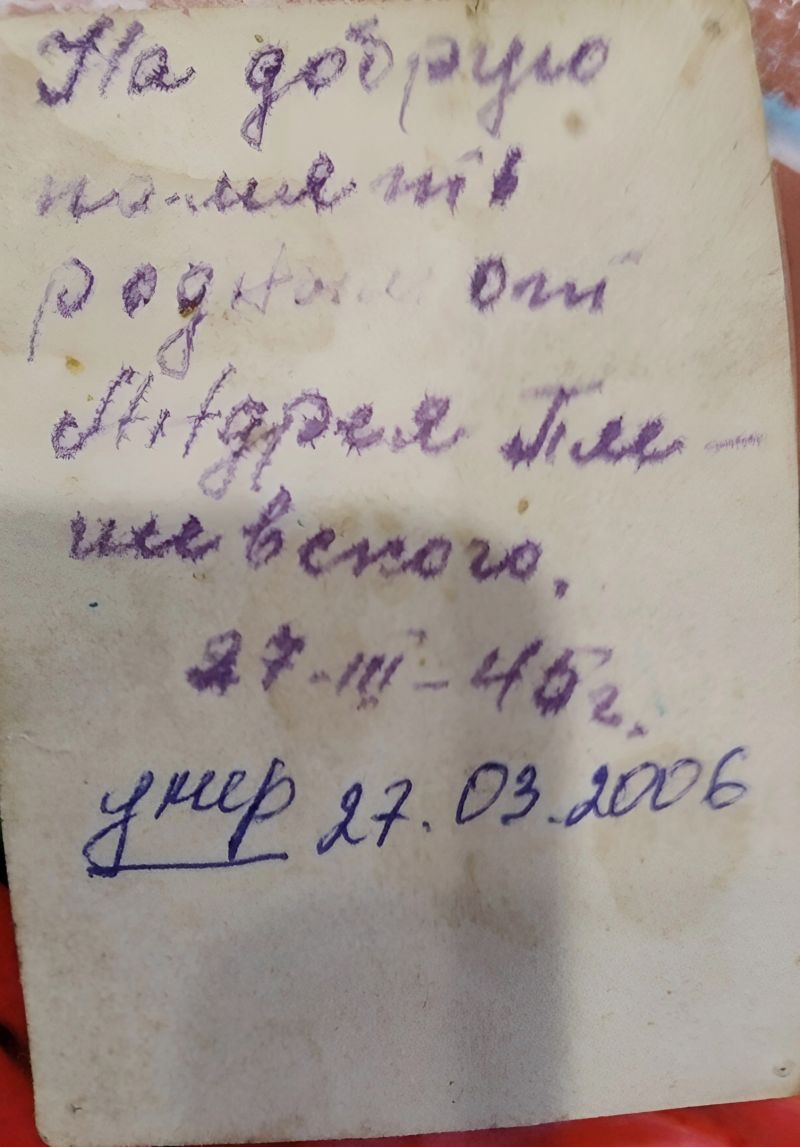 На добрую
память
родным от
Андрея Пле-
шевского.
27-III-45г.
умер 27.03.2006